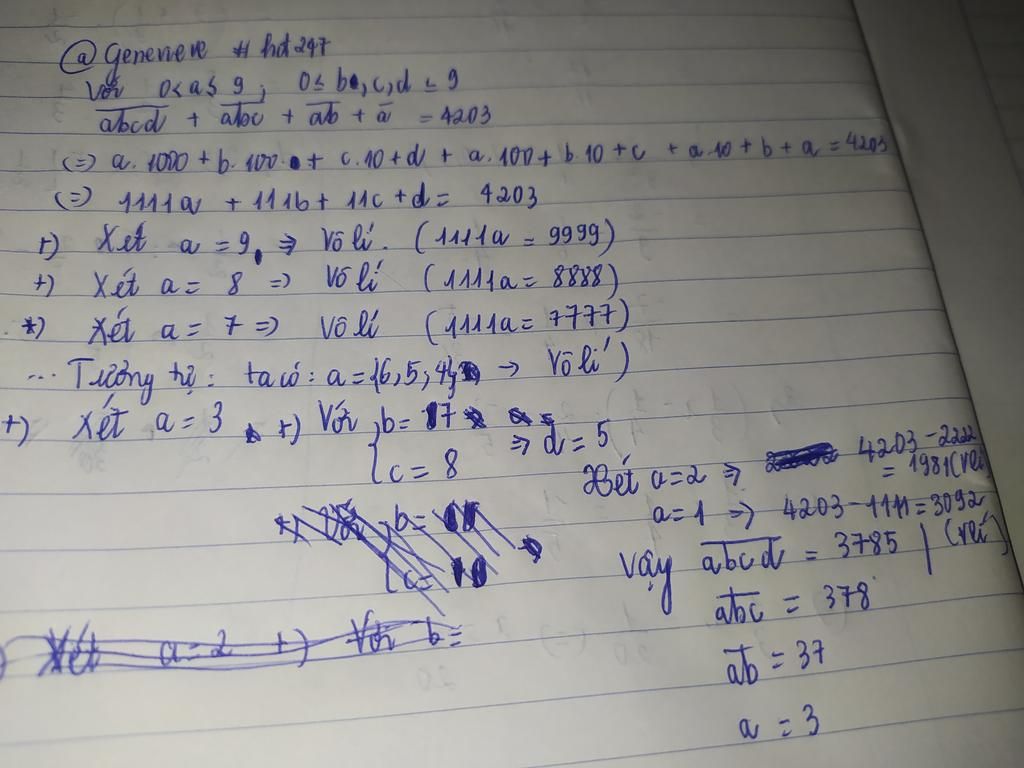 @ Genevieve # hd247
Với 0<a≤9; 0≤b,c,d≤9
abcd + abc + ab + a = 4203
(=) a.1000 + b.100 + c.10 + d + a.100 + b.10 + c + a.10 + b + a = 4203
(=) 1111a + 111b + 11c + d = 4203
+) Xét a = 9 => Vô lí. (1111a = 9999)
+) Xét a = 8 => Vô lí (1111a = 8888)
*) Xét a = 7 => Vô lí (1111a = 7777)
... Tương tự: ta có: a = {6,5,4} -> Vô lí)
+) Xét a = 3 +) Với {b = 7
c = 8 => d = 5
Xét a=2 => 4203-2222
= 1981 (vlí)
a=1 => 4203-1111=3092
(vlí)
Vậy abcd = 3785
abc = 378
ab = 37
a = 3
b =
c =
Xét a=2 +) Với b =